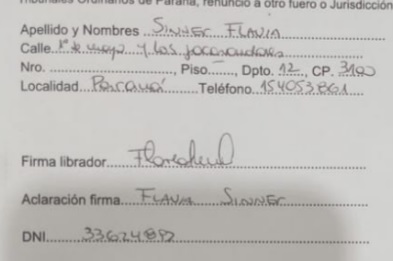 Tribunales Ordinarios de Paraná, renuncio a otro fuero o Jurisdicción
Apellido y Nombres SINNER FLAVIA
Calle 1° de mayo y los jacarandaes
Nro. , Piso , Dpto. 12 , CP. 3100
Localidad Paraná Teléfono 154053861
Firma librador
Aclaración firma FLAVIA SINNER
DNI 33624892